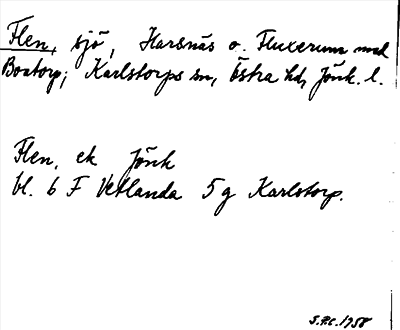 Flen, sjö, Harsnäs o. Fluxerum med
Boatorp; Karlstorps sn, Östra hd, Jönk. l.
Flen, ek Jönk
bl. 6 F Vetlanda 5 g Karlstorp.
1958